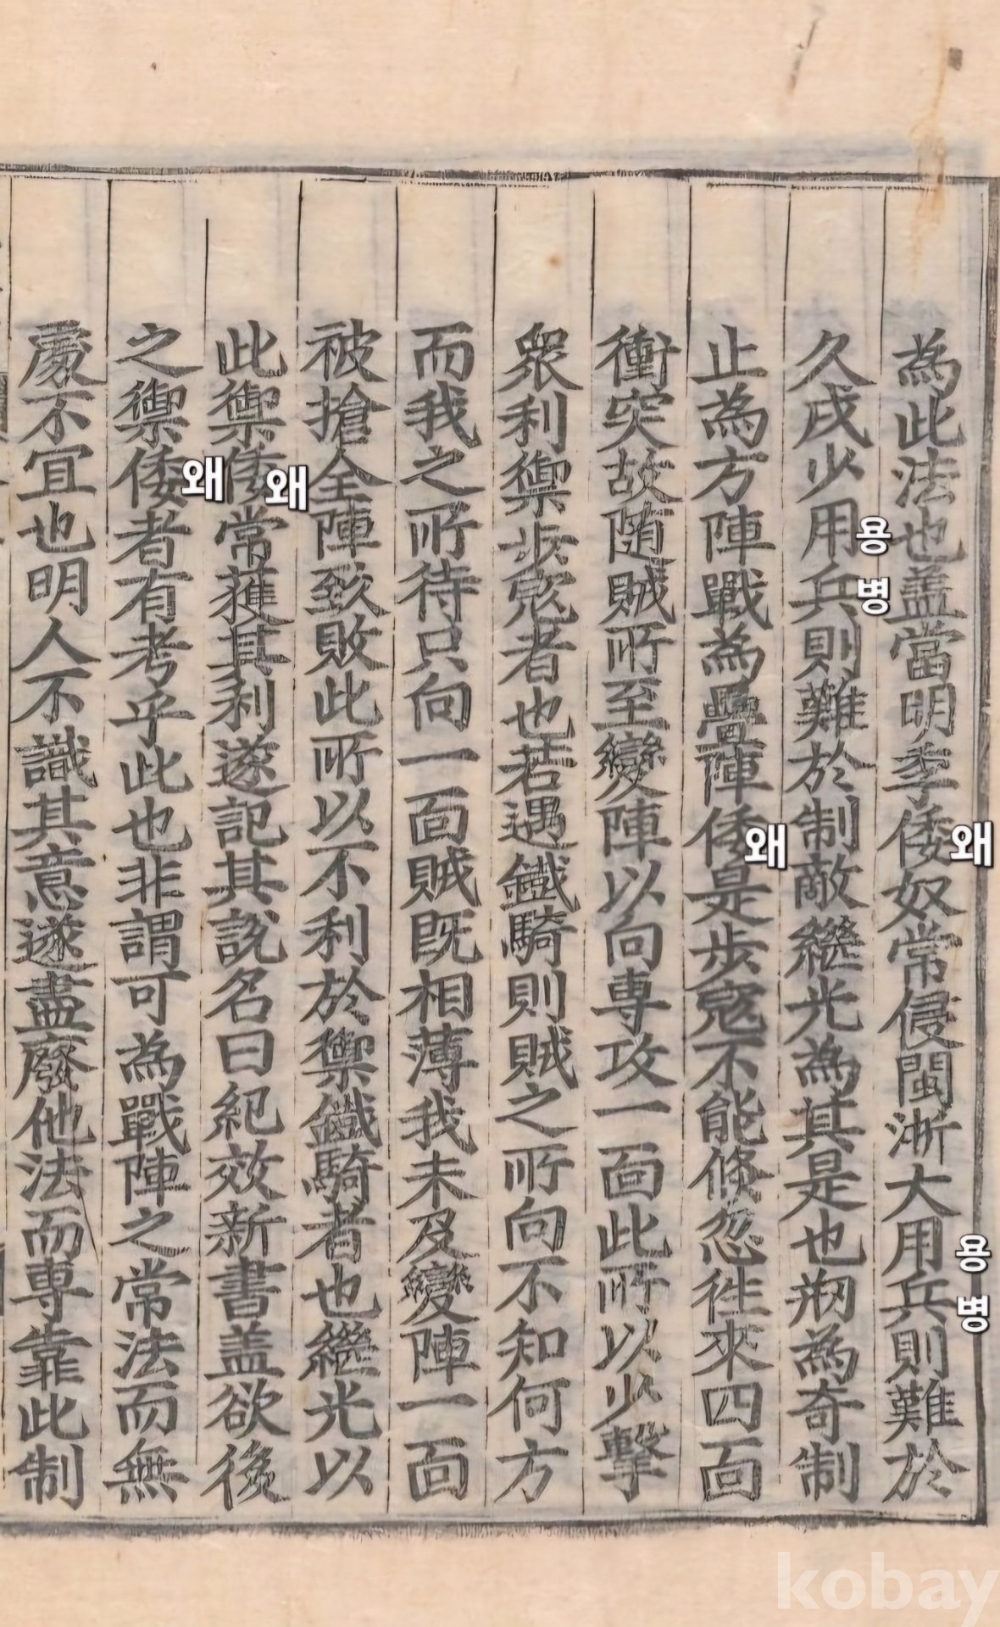 為此法也盖當明季倭奴常侵閩浙大用兵則難於
久戍少用兵則難於制敵繼光為其是也刱為奇制
止為方陣戰為疊陣倭是步寇不能倏忽往來四面
衝突故随賊所至變陣以向專攻一面此所以少擊
衆利禦步寇者也若遇鐵騎則賊之所向不知何方
而我之所待只向一面賊既相薄我未及變陣一面
被搶全陣致敗此所以不利於禦鐵騎者也繼光以
此禦倭常獲其利遂記其說名曰紀效新書盖欲後
之禦倭者有考乎此也非謂可為戰陣之常法而無
處不宜也明人不識其意遂盡廢他法而專靠此制
왜
용병
왜
용병
왜
왜
kobay